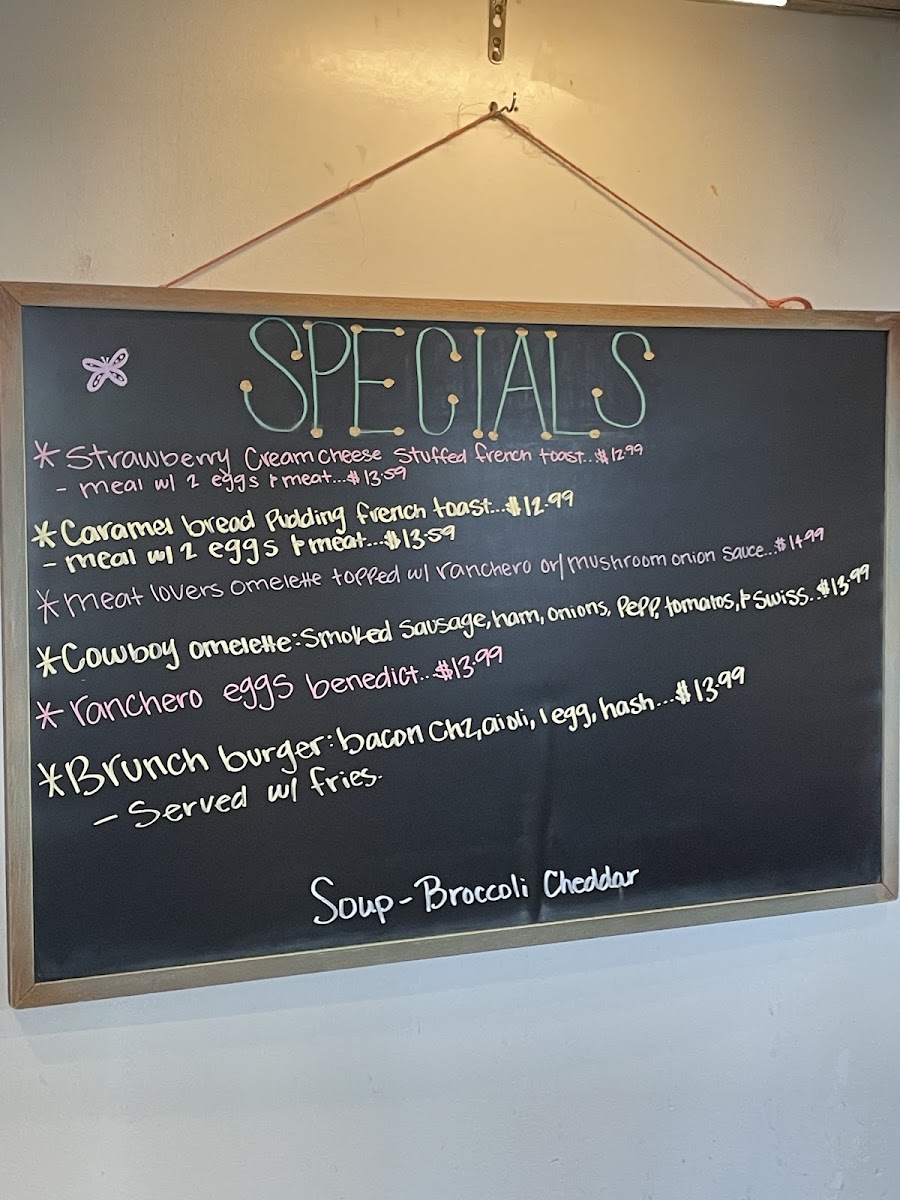 SPECIALS
* Strawberry Cream cheese Stuffed french toast...$12.99
- meal w/ 2 eggs & meat...$13.59
* Caramel bread Pudding french toast...$12.99
- meal w/ 2 eggs & meat...$13.59
* meat lovers omelette topped w/ ranchero or/mushroom onion sauce...$14.99
* Cowboy omelette: Smoked Sausage, ham, onions, Pepp, tomatos, & Swiss...$13.99
* ranchero eggs benedict..$13.99
* Brunch burger: bacon chz, aioli, 1 egg, hash...$13.99
- Served w/ fries.
Soup - Broccoli Cheddar